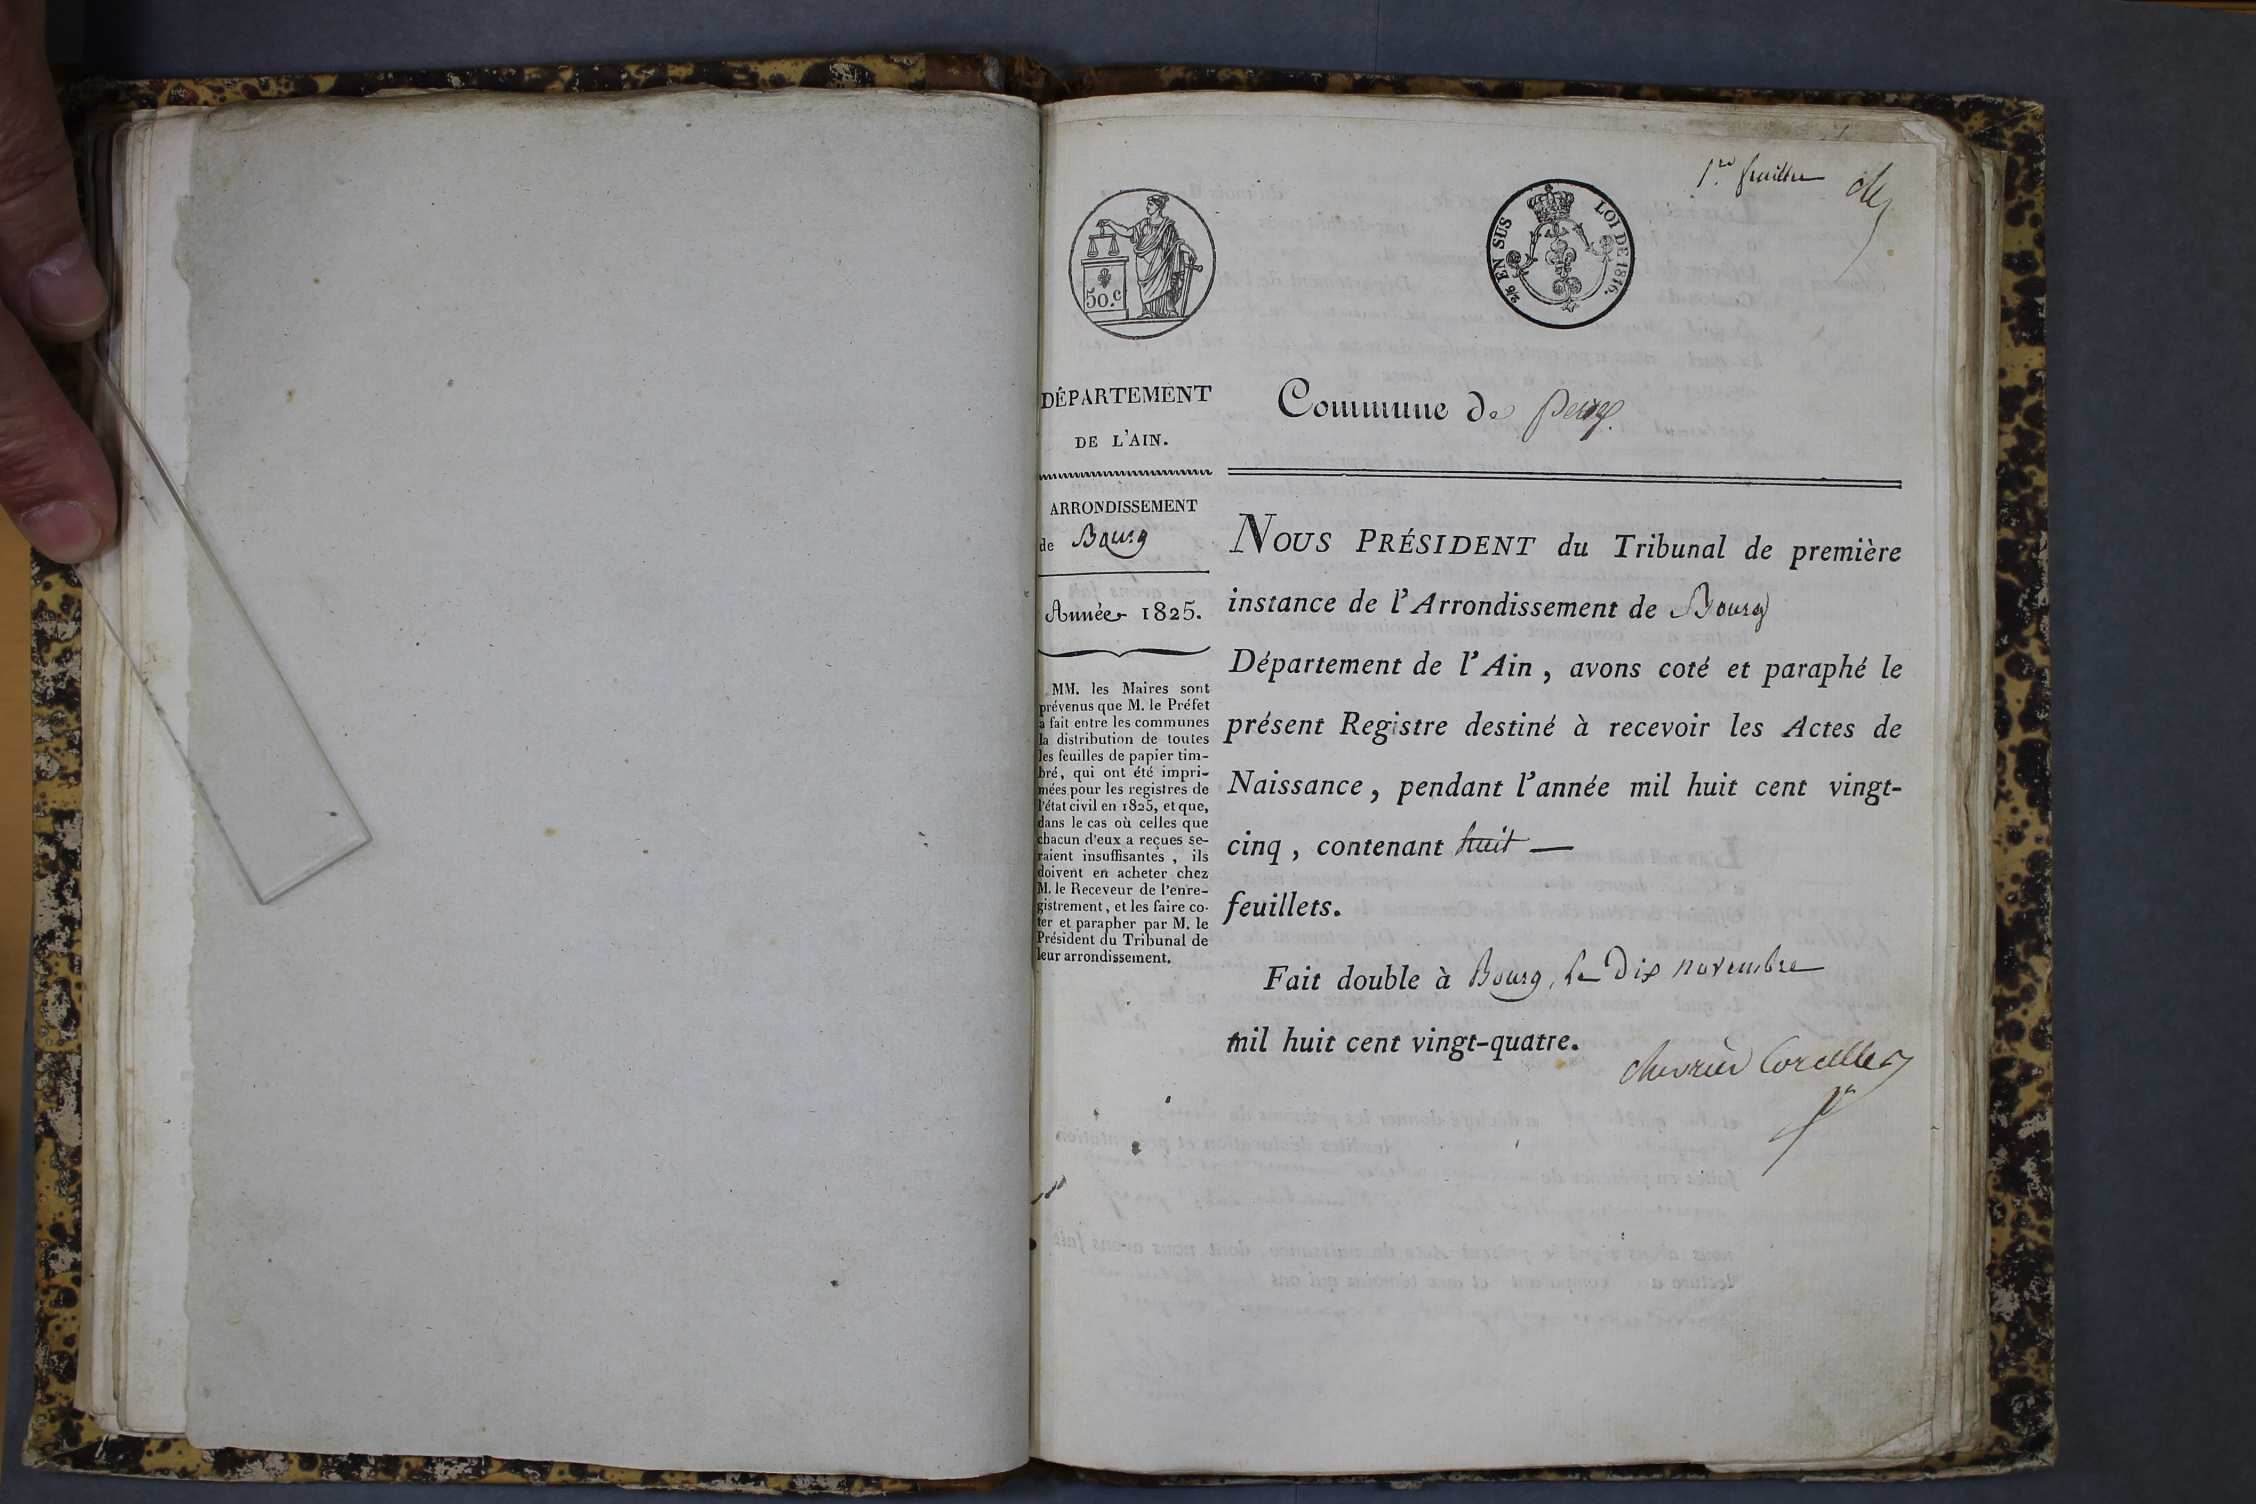 1re feuillet
50.c
2/5 EN SUS LOI DE 1816.
DÉPARTEMENT
DE L'AIN.
ARRONDISSEMENT
de Bourg
Année 1825.
MM. les Maires sont
prévenus que M. le Préfet
a fait entre les communes
la distribution de toutes
les feuilles de papier tim-
bré, qui ont été impri-
mées pour les registres de
l'état civil en 1825, et que,
dans le cas où celles que
chacun d'eux a reçues se-
raient insuffisantes, ils
doivent en acheter chez
M. le Receveur de l'enre-
gistrement, et les faire co-
ter et parapher par M. le
Président du Tribunal de
leur arrondissement.
Commune de
NOUS PRÉSIDENT du Tribunal de première
instance de l'Arrondissement de Bourg
Département de l'Ain, avons coté et paraphé le
présent Registre destiné à recevoir les Actes de
Naissance, pendant l'année mil huit cent vingt-
cinq, contenant huit —
feuillets.
Fait double à Bourg, le Dix novembre
mil huit cent vingt-quatre.
chevrier Corcelles